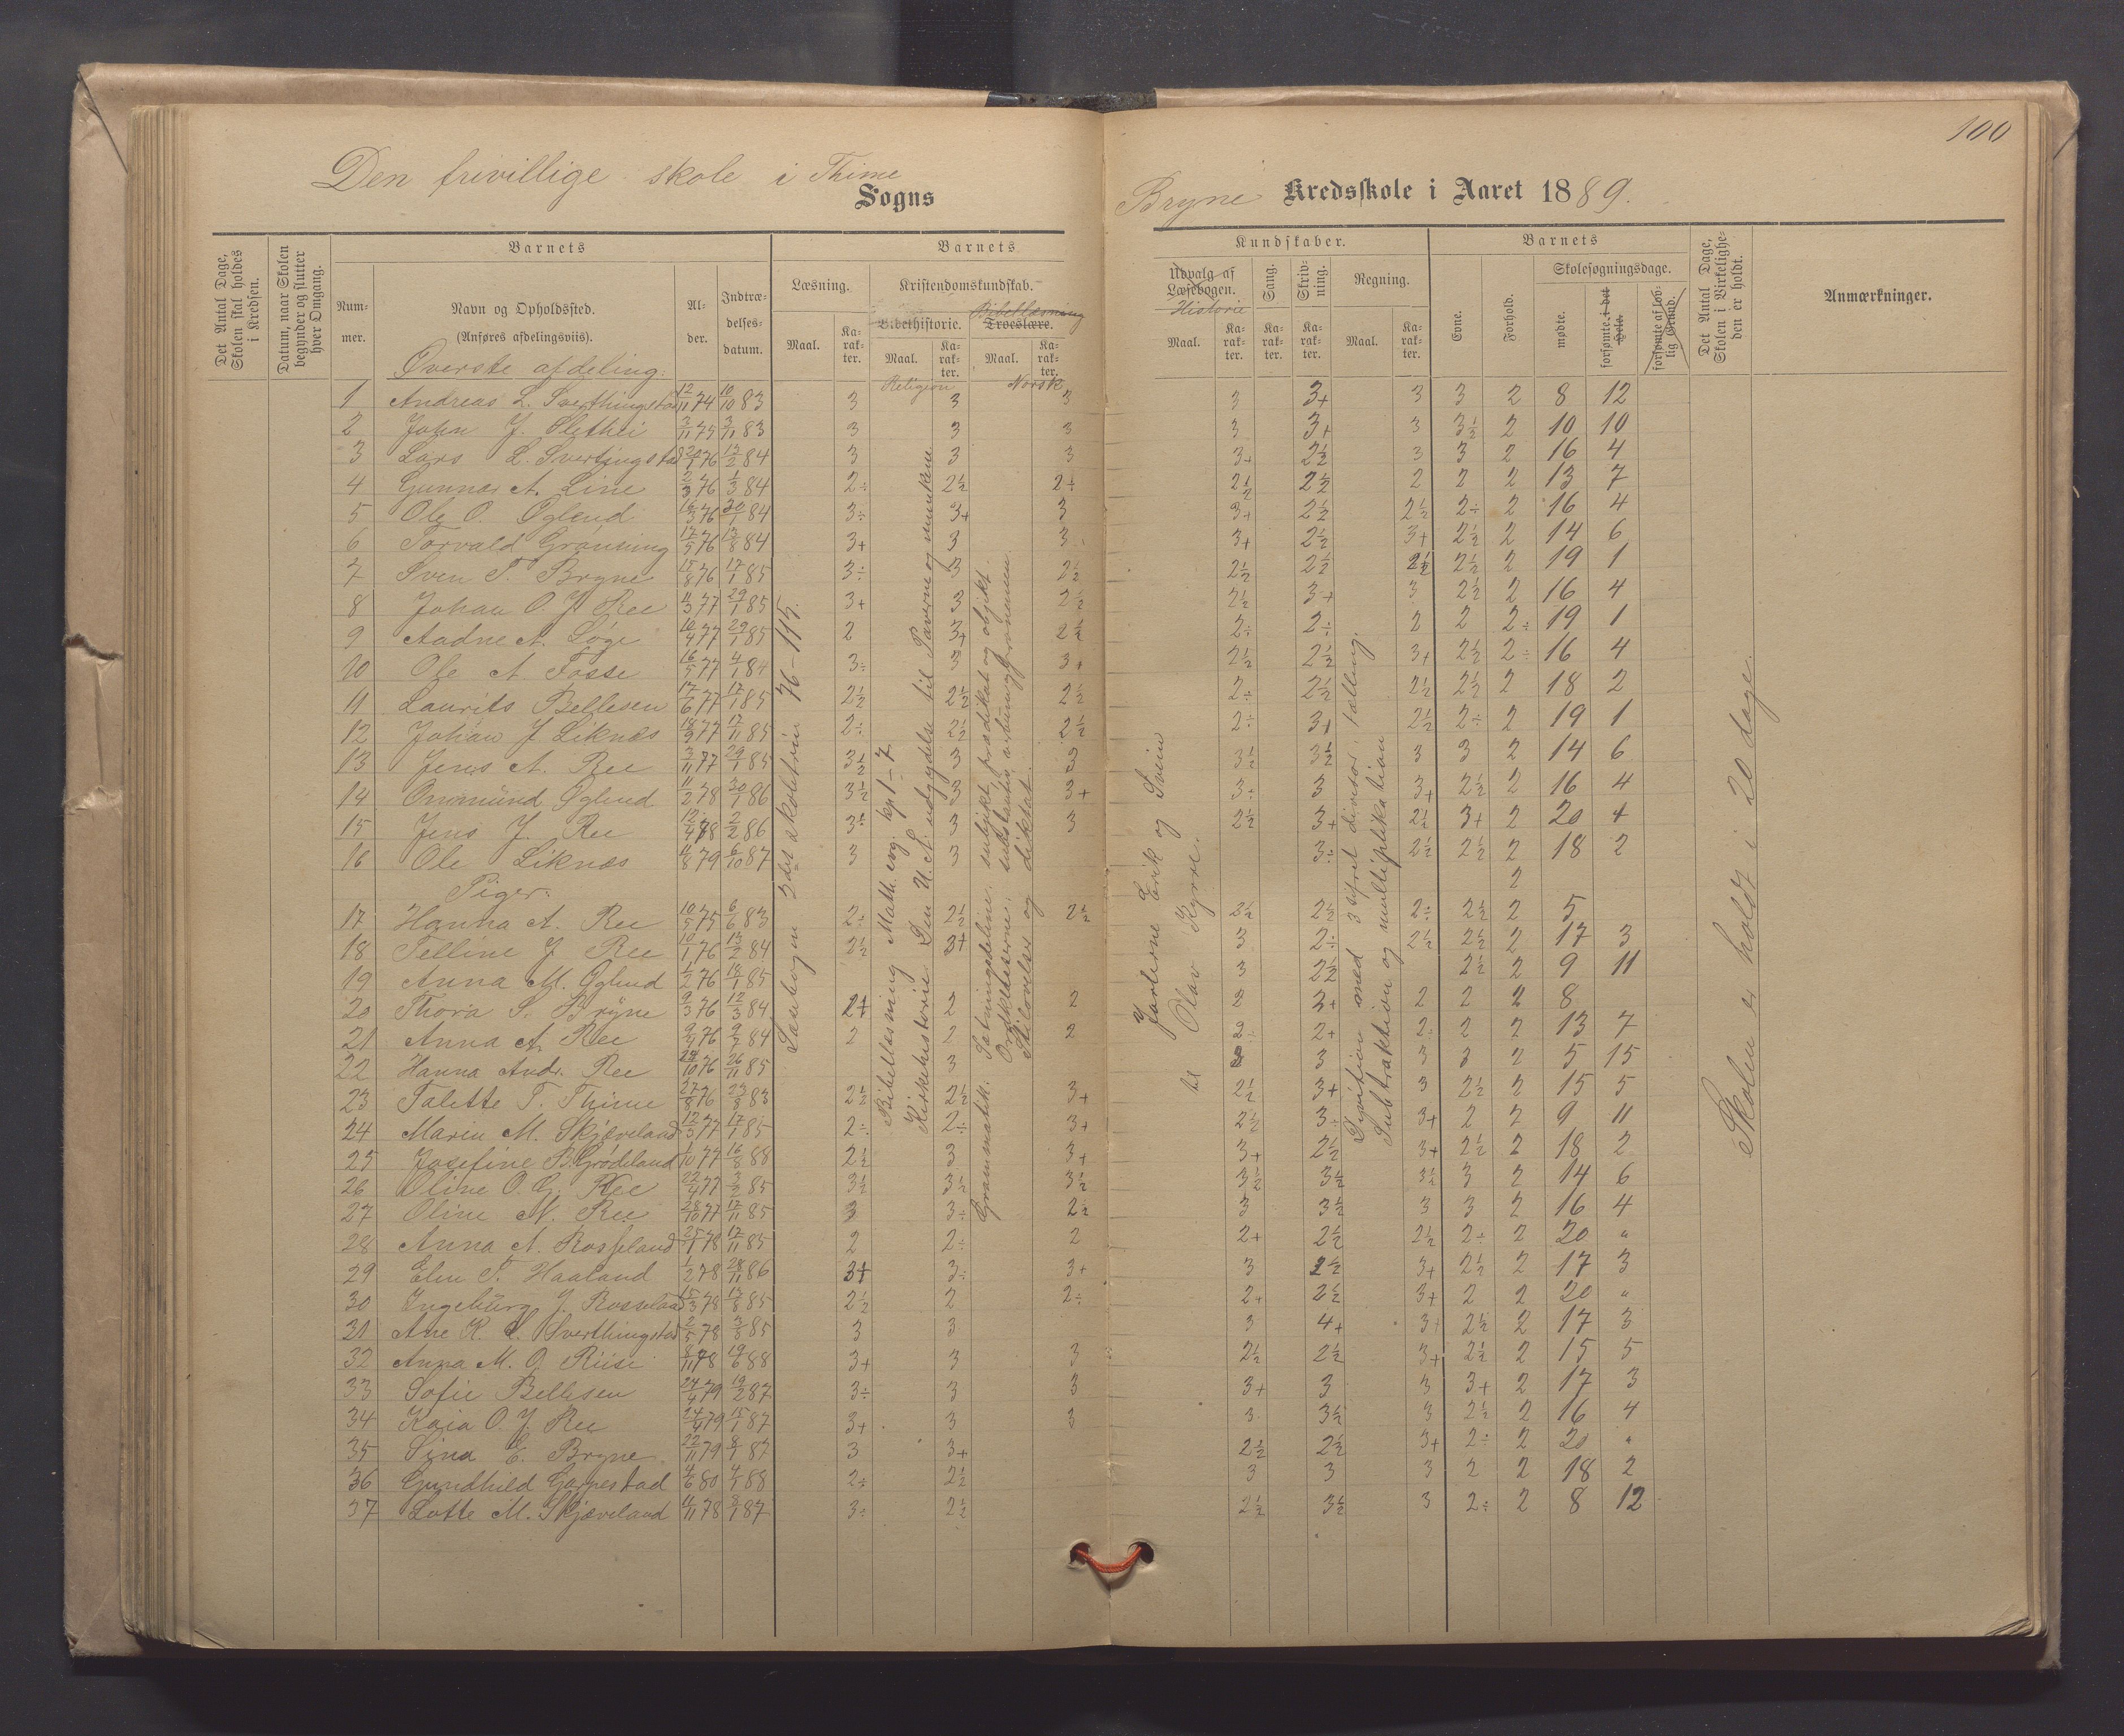 100
Den frivillige skole i Thime
Sogns
Bryne Kredsskole i Aaret 1889.
Det Antal Dage, Skolen skal holdes i Kredsen.
Datum, naar Skolen begynder og slutter hver Omgang.
Barnets
Nummer.
Navn og Opholdssted.
(Anføres afdelingsviis).
Alder.
Indtrædelsesdatum.
Barnets
Læsning.
Maal.
Karakter.
Kristendomskundskab.
Bibelhistorie.
Maal.
Karakter.
Bibellæsning
Troeslære.
Maal.
Karakter.
Religion
Norsk
Kundskaber.
Udvalg af Læsebogen.
Historie
Maal.
Karakter.
Sang.
Karakter.
Skrivning.
Karakter.
Regning.
Maal.
Karakter.
Barnets
Evne.
Forhold.
Skolesøgningsdage.
mødte.
forsømte i det Hele.
forsømte af lovlig Grund.
Det Antal Dage, Skolen i Virkeligheden er holdt.
Anmærkninger.
Øverste afdeling:
1 Andreas L. Sverthingstad 12/11 74 10/10 83 3 3 3 3 3+ 3 3 2 8 12
2 John J. Slethei 3/11 75 3/11 83 3 3 3 3 3+ 3 3½ 2 10 10
3 Lars L. Svertingstad 76 13/2 84 3 3 3 3+ 2½ 3 3 2 16 4
4 Gunnar A. Line 2/3 76 1/3 84 2÷ 2½ 2÷ 2½ 2½ 2 2 2 13 7
5 Ole O. Øglend 16/3 76 30/1 84 3÷ 3+ 3 3+ 2½ 2½ 2÷ 2 16 4
6 Torvald Gransing 17/5 76 13/8 84 3+ 3 3 3+ 2½ 3+ 2½ 2 14 6
7 Sven T. Bryne 15/8 76 17/1 85 3÷ 3 2½ 2½ 2½ 2½ 2½ 2 19 1
8 Johan O. J. Ree 11/3 77 29/1 85 3+ 3 2½ 2½ 3+ 3 2½ 2 16 4
9 Aadne A. Søge 10/4 77 29/1 85 2 3+ 2½ 2÷ 2÷ 2 2 2÷ 19 1
10 Ole A. Fosse 16/5 77 4/1 84 3÷ 3 3+ 2½ 2½ 3+ 2½ 2÷ 16 4
11 Laurits Bellesen 17/6 77 17/1 85 2½ 2½ 2½ 2÷ 2½ 2½ 2½ 2 18 2
12 Johan J Liknæs 18/9 77 17/11 85 2÷ 2½ 2½ 2÷ 3+ 2½ 2÷ 2 19 1
13 Jens A. Ree 3/11 77 29/1 85 3½ 3 3 3½ 3½ 3 3 2 14 6
14 Ommund Øglend 11/2 78 30/1 86 3½ 3 3+ 3÷ 3 3+ 2½ 2 16 4
15 Jens J. Ree 12/4 78 2/2 86 3÷ 3 3 2½ 3+ 2½ 3+ 2 20
16 Ole Liknæs 11/8 79 6/10 87 3 3 3÷ 2½ 2½ 2 18 2
Piger: 2
17 Hanna A. Ree 10/5 75 6/6 83 2÷ 2½ 2½ 2½ 2½ 2÷ 2½ 2 5
18 Telline J Ree 10/1 76 13/2 84 2½ 3+ 3 2÷ 2½ 2½ 2 17 3
19 Anna M. Øglend 1/2 76 18/1 85 3 2½ 2½ 2 9 11
20 Thora S. Bryne 9/3 76 12/3 84 2+ 2 2 2 2+ 2 2 2 8
21 Anna A. Ree 9/4 76 9/7 84 2 2 2 2÷ 2+ 2÷ 2 2 13 7
22 Hanna Andr. Ree 10 76 26/11 85 3 3 3 3 3 2 5 15
23 Talette T. Thime 27/8 76 23/8 83 2½ 2½ 3+ 2½ 3+ 3 2½ 2 15 5
24 Marin M. Skjæveland 12/3 77 17/1 85 2÷ 2÷ 3+ 2½ 3÷ 3+ 2 2 9 11
25 Josefine B. Grødeland 1/10 77 16/8 88 2½ 3 3+ 3+ 2½ 3+ 2½ 2 18 2
26 Oline O. G. Ree 22/4 77 3/2 85 3½ 3½ 3½ 3½ 3½ 3½ 3 2 14 6
27 Oline N. Ree 28/10 77 17/11 85 3 3÷ 2½ 3 3½ 3 3 2 16 4
28 Anna A. Rosseland 25/1 78 17/11 85 2 2÷ 2 2+ 2½ 2½ 2÷ 2 20 "
29 Elen T. Haaland 1/2 78 28/11 86 3+ 3÷ 3+ 3 2½ 3+ 2½ 2 17 3
30 Ingeburg J. Rosseland 15/3 78 13/8 85 2½ 2 2÷ 2+ 2½ 3+ 2 2 20 "
31 Ane K. L. Sverthingstad 2/5 78 3/8 85 3 3 3 4+ 3+ 2½ 2 17 3
32 Anna M. O. Riise 8/11 78 19/6 88 3+ 3 3 2½ 2½ 3+ 2½ 2 15 5
33 Sofie Bellesen 24/4 79 19/2 87 3÷ 3 3 3+ 3 3 3+ 2 17 3
34 Kaia O. J. Ree 79 15/1 87 3+ 3 3 3 3½ 3 2½ 2 16 4
35 Sina E. Bryne 22/11 79 8/1 87 3 3+ 2½ 2½ 3+ 2÷ 2 20 "
36 Gundhild Garpestad 4/6 80 4/1 88 2÷ 2½ 3 3 3 2 2 18 2
37 Lotte M. Skjæveland 11/11 78 8/1 87 3÷ 2½ 2½ 3½ 3 2÷ 2 8 12
Læsebogen 2det skoletrin 76-115.
Bibellæsning Matth. evg. kp 1-7
Kirkehistorie Den u. A. udgydelse til Paverne og munkene
Grammatik: Sætningsdelene: subjekt, prædikat og objekt.
Ordklasserne: substantiv, verbum og pronomen.
Stiløvelser og diktat.
Jarlerne Erik og Svein
til Olav Kyrre.
Division med 3 sifret divisor iælling.
Subtraktion og multiplikation
Skolen er holdt i 20 dage.